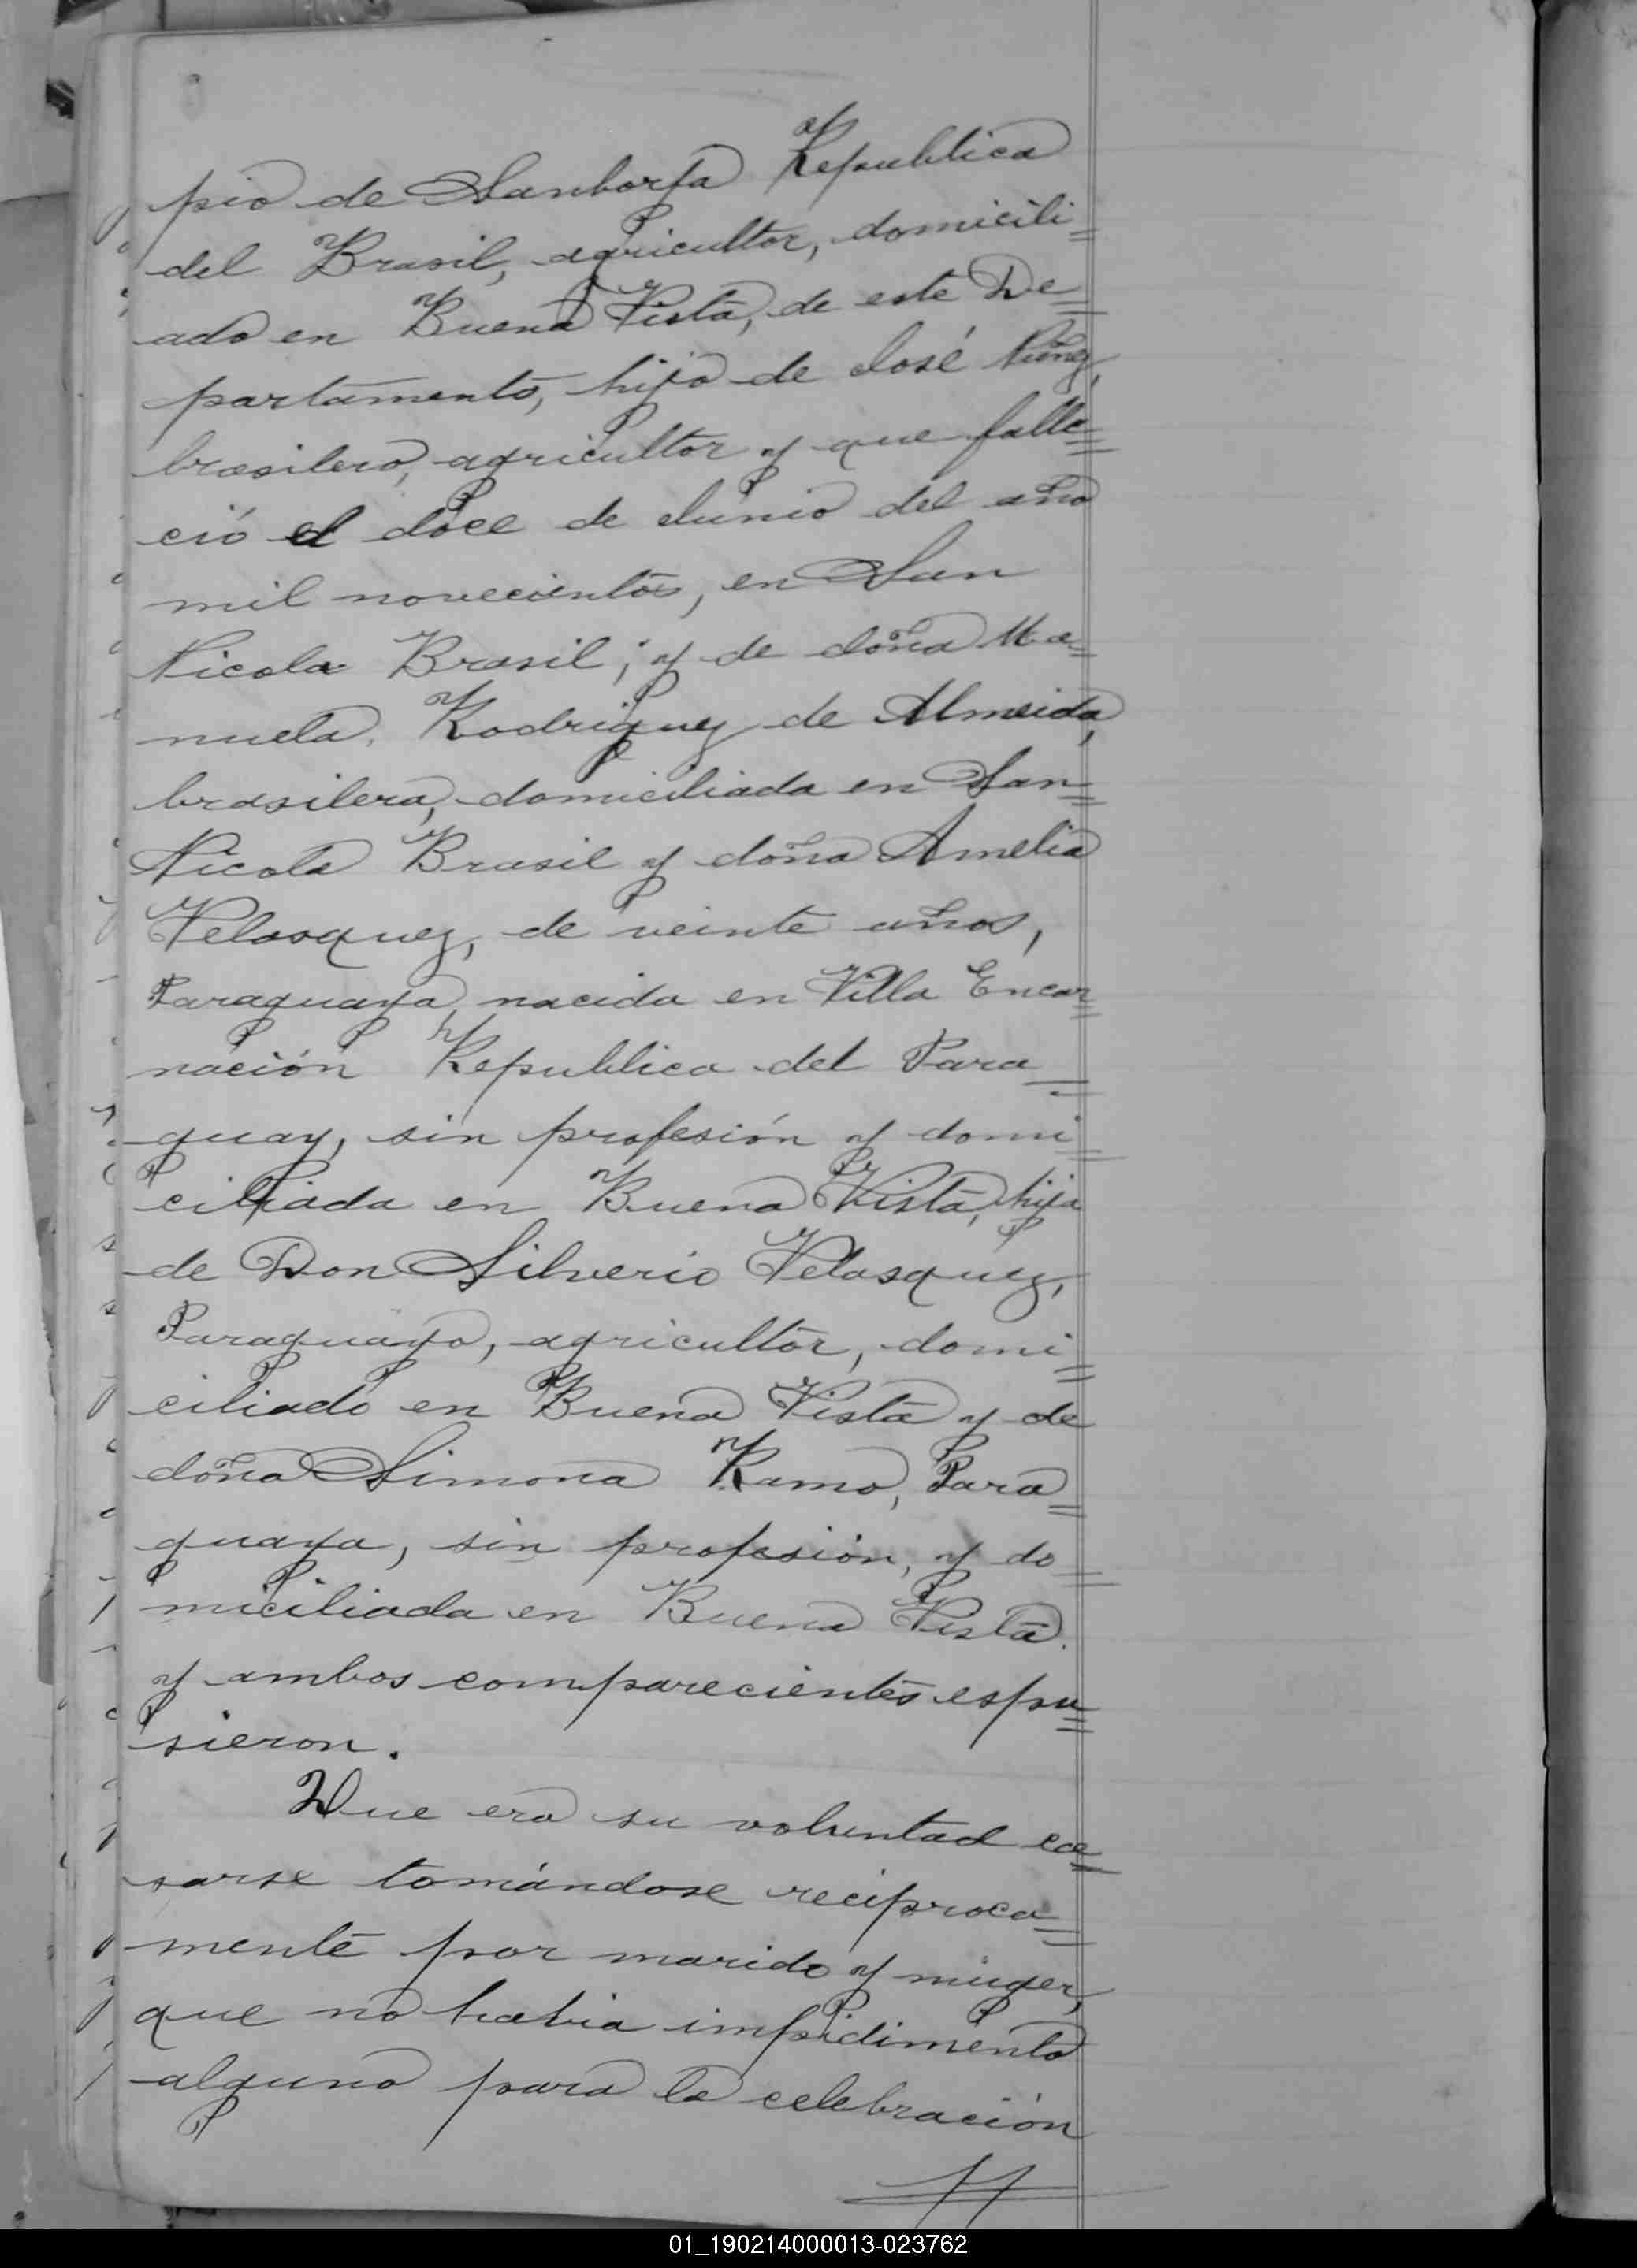 pio de Sanborja Republica
del Brasil, agricultor, domicili=
ado en Buena Vista, de este De=
partamento, hijo de José Nuñez,
brasilero, agricultor y que falle=
ció el doce de Junio del año
mil novecientos, en San
Nicola Brasil; y de doña Ma=
nuela Rodriguez de Almeida,
brasilera, domiciliada en San=
Nicola Brasil y doña Amelia
Velasquez, de veinte años,
Paraguaya, nacida en Villa Encar=
nación Republica del Para=
guay, sin profesión y domi=
ciliada en Buena Vista, hija
de Don Silverio Velasquez,
Paraguayo, agricultor, domi=
ciliado en Buena Vista y de
doña Simona Ramo, Para=
guaya, sin profesión, y do=
miciliada en Buena Vista.
y ambos comparecientes espu=
sieron.
Que era su voluntad ca=
sarse tomándose reciproca=
mente por marido y muger,
que no habia impidimento
alguno para la celebración
01_190214000013-023762